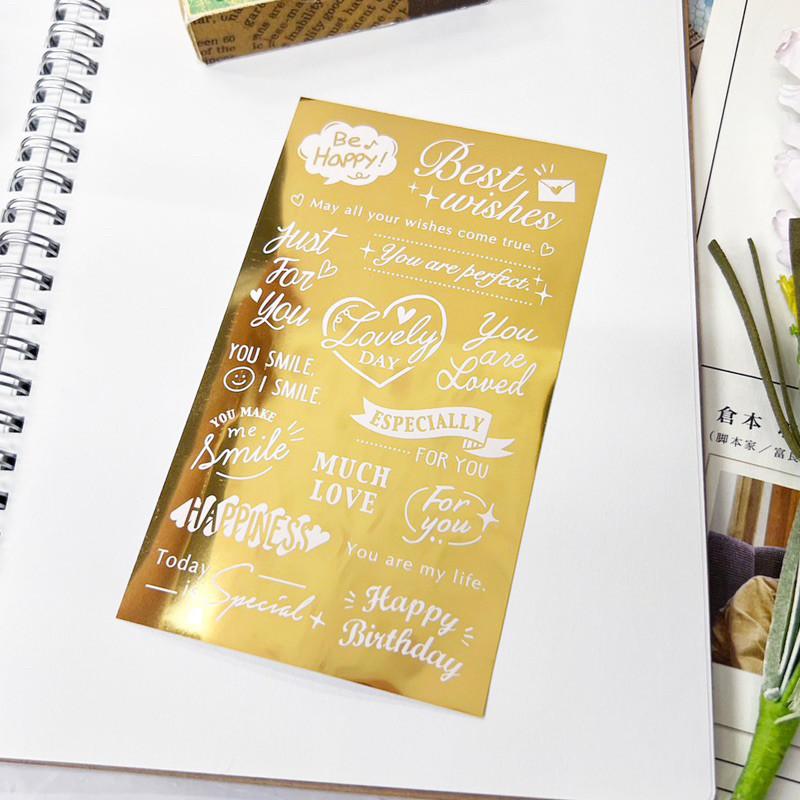 Be♪
Happy!
Best
wishes
May all your wishes come true.
Just
For
You
You are perfect.
Lovely
DAY
You
are
Loved
YOU SMILE,
I SMILE.
ESPECIALLY
FOR YOU
YOU MAKE
me
Smile
MUCH
LOVE
For
you
HAPPINESS
You are my life.
Today
is Special
Happy
Birthday
倉本
(脚本家／富良